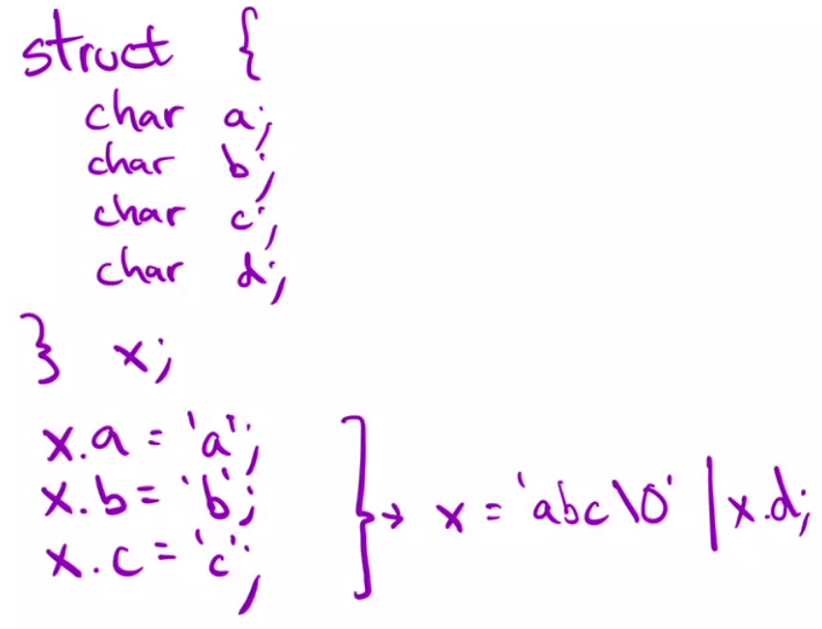 struct {
char a;
char b;
char c;
char d;
} x;
x.a = 'a';
x.b = 'b';
x.c = 'c';
} → x = 'abc\0' | x.d;